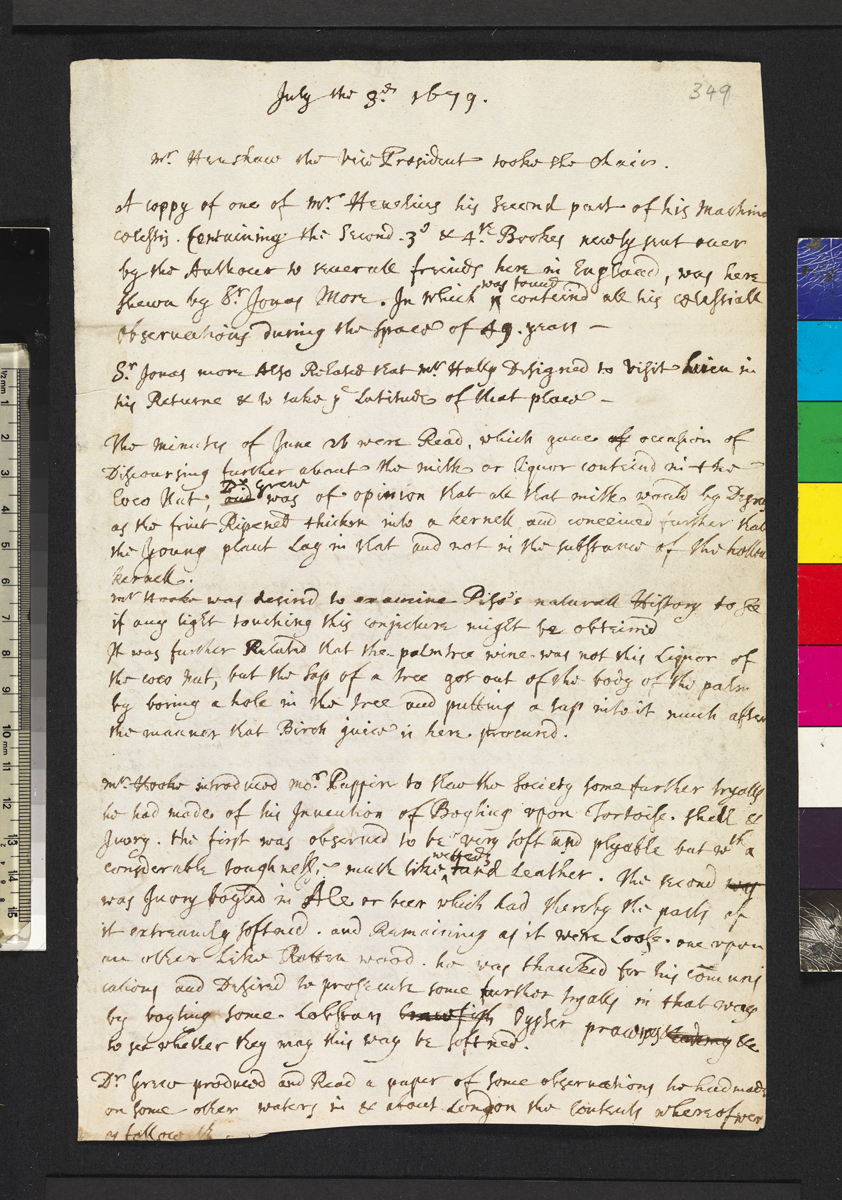 349
July the 3d. 1679.
Mr. Henshaw the Vice President tooke the Chair.
A coppy of one of Mr. Hevelius his Second part of his Machina
cœlestis. Containing the Second. 3d & 4th. Bookes newly sent over
by the Authour to severall freinds here in England, was here
shewn by Sr. Jonas More. In which was found conteind all his cœlestiall
observations during the space of 49. years —
Sr. Jonas more Also Related that Mr Hally Designed to visit him in
his Returne & to take ye Latitude of that place —
The minutes of June 26 were Read, which gave of occasion of
Discoursing further about the milk or liquor conteind in the
Coco Nut; and Dr. Grew was of opinion that all that milk would by Degrees
as the fruit Ripened thicken into a kernell and conceived further that
the young plant Lay in that and not in the substance of the hollow
kernell.
Mr Hooke was desired to examine Piso's naturall History to see
if any light touching this conjecture might be obteined
It was further Related that the palmtree wine was not this Liquor of
the coco Nut, but the Sap of a tree got out of the body of the palm
by boring a hole in the tree and putting a tap into it much after
the manner that Birch juice is here procured.
Mr. Hooke introduced mor. Pappin to shew the Society some further tryalls
he had made of his Invention of Boyling upon Tortoise. shell &
Ivory. the first was observed to be very soft and plyable but wth a
considerable toughness, much like wetted tand Leather. The second way
was Ivory boyled in Ale or beer which had thereby the parts of
it extreamly softned. and Remaining as it were Loose. one upon
an other Like Rotten wood. he was thanked for his communi
cations and Desired to prosecute some further tryalls in that way
by boyling some Lobstars crawfish Oyster prawns &c
to see whether they may this way be softned.
Dr. Grew produced and Read a paper of some observations he had made
on some other waters in & about London the Contents whereof wer
as followeth